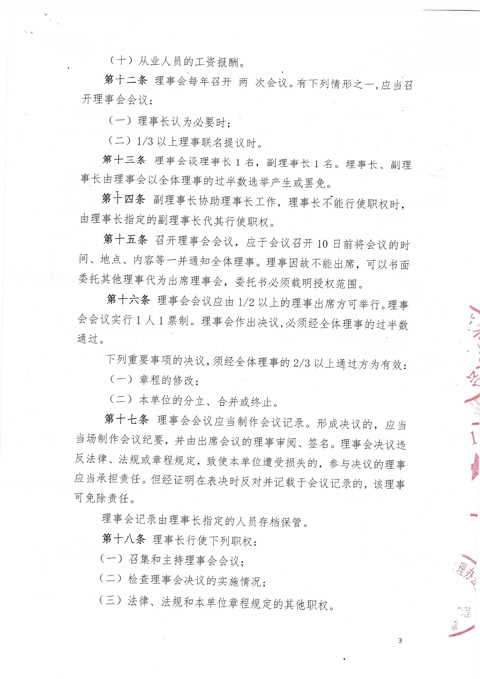 （十）从业人员的工资报酬。
第十二条 理事会每年召开 两 次会议。有下列情形之一,应当召
开理事会会议:
（一）理事长认为必要时;
（二）1/3 以上理事联名提议时。
第十三条 理事会设理事长 1 名，副理事长 1 名。理事长、副理
事长由理事会以全体理事的过半数选举产生或罢免。
第十四条 副理事长协助理事长工作，理事长不能行使职权时，
由理事长指定的副理事长代其行使职权。
第十五条 召开理事会会议，应于会议召开 10 日前将会议的时
间、地点、内容等一并通知全体理事。理事因故不能出席，可以书面
委托其他理事代为出席理事会，委托书必须载明授权范围。
第十六条 理事会会议应由 1/2 以上的理事出席方可举行。理事
会会议实行 1 人 1 票制。理事会作出决议,必须经全体理事的过半数
通过。
下列重要事项的决议,须经全体理事的 2/3 以上通过方为有效:
（一）章程的修改;
（二）本单位的分立、合并或终止。
第十七条 理事会会议应当制作会议记录。形成决议的，应当
当场制作会议纪要，并由出席会议的理事审阅、签名。理事会决议违
反法律、法规或章程规定，致使本单位遭受损失的，参与决议的理事
应当承担责任。但经证明在表决时反对并记载于会议记录的，该理事
可免除责任。
理事会记录由理事长指定的人员存档保管。
第十八条 理事长行使下列职权:
（一）召集和主持理事会会议;
（二）检查理事会决议的实施情况;
（三）法律、法规和本单位章程规定的其他职权。
理办
3